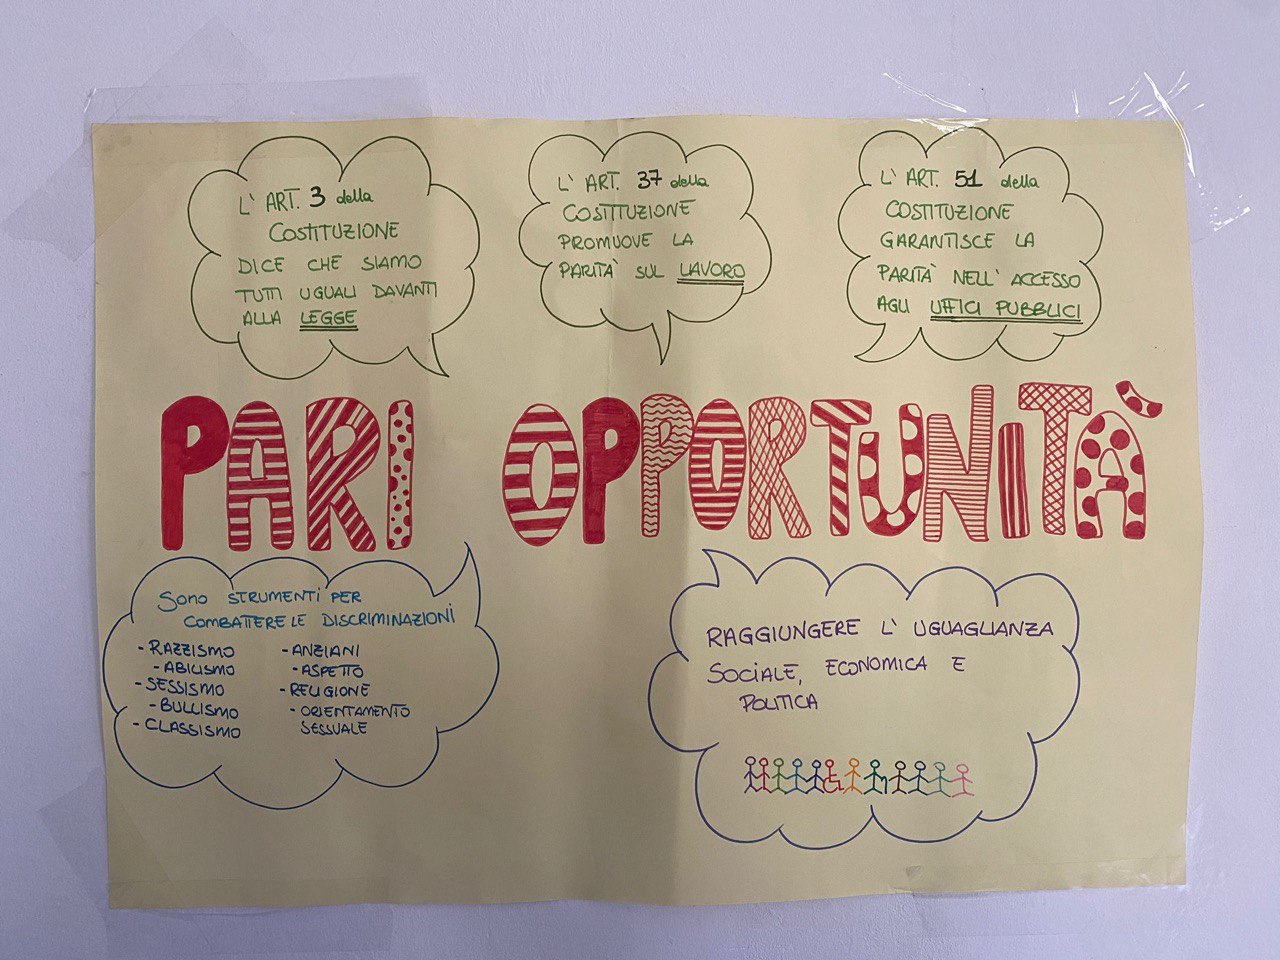 L' ART. 3 della
COSTITUZIONE
DICE CHE SIAMO
TUTTI UGUALI DAVANTI
ALLA LEGGE
L' ART. 37 della
COSTITUZIONE
PROMUOVE LA
PARITÀ SUL LAVORO
L' ART. 51 della
COSTITUZIONE
GARANTISCE LA
PARITÀ NELL' ACCESSO
AGLI UFFICI PUBBLICI
PARI OPPORTUNITÀ
Sono STRUMENTI PER
COMBATTERE LE DISCRIMINAZIONI
- RAZZISMO
- ABILISMO
- SESSISMO
- BULLISMO
- CLASSISMO
- ANZIANI
- ASPETTO
- RELIGIONE
- ORIENTAMENTO
SESSUALE
RAGGIUNGERE L' UGUAGLIANZA
SOCIALE, ECONOMICA E
POLITICA